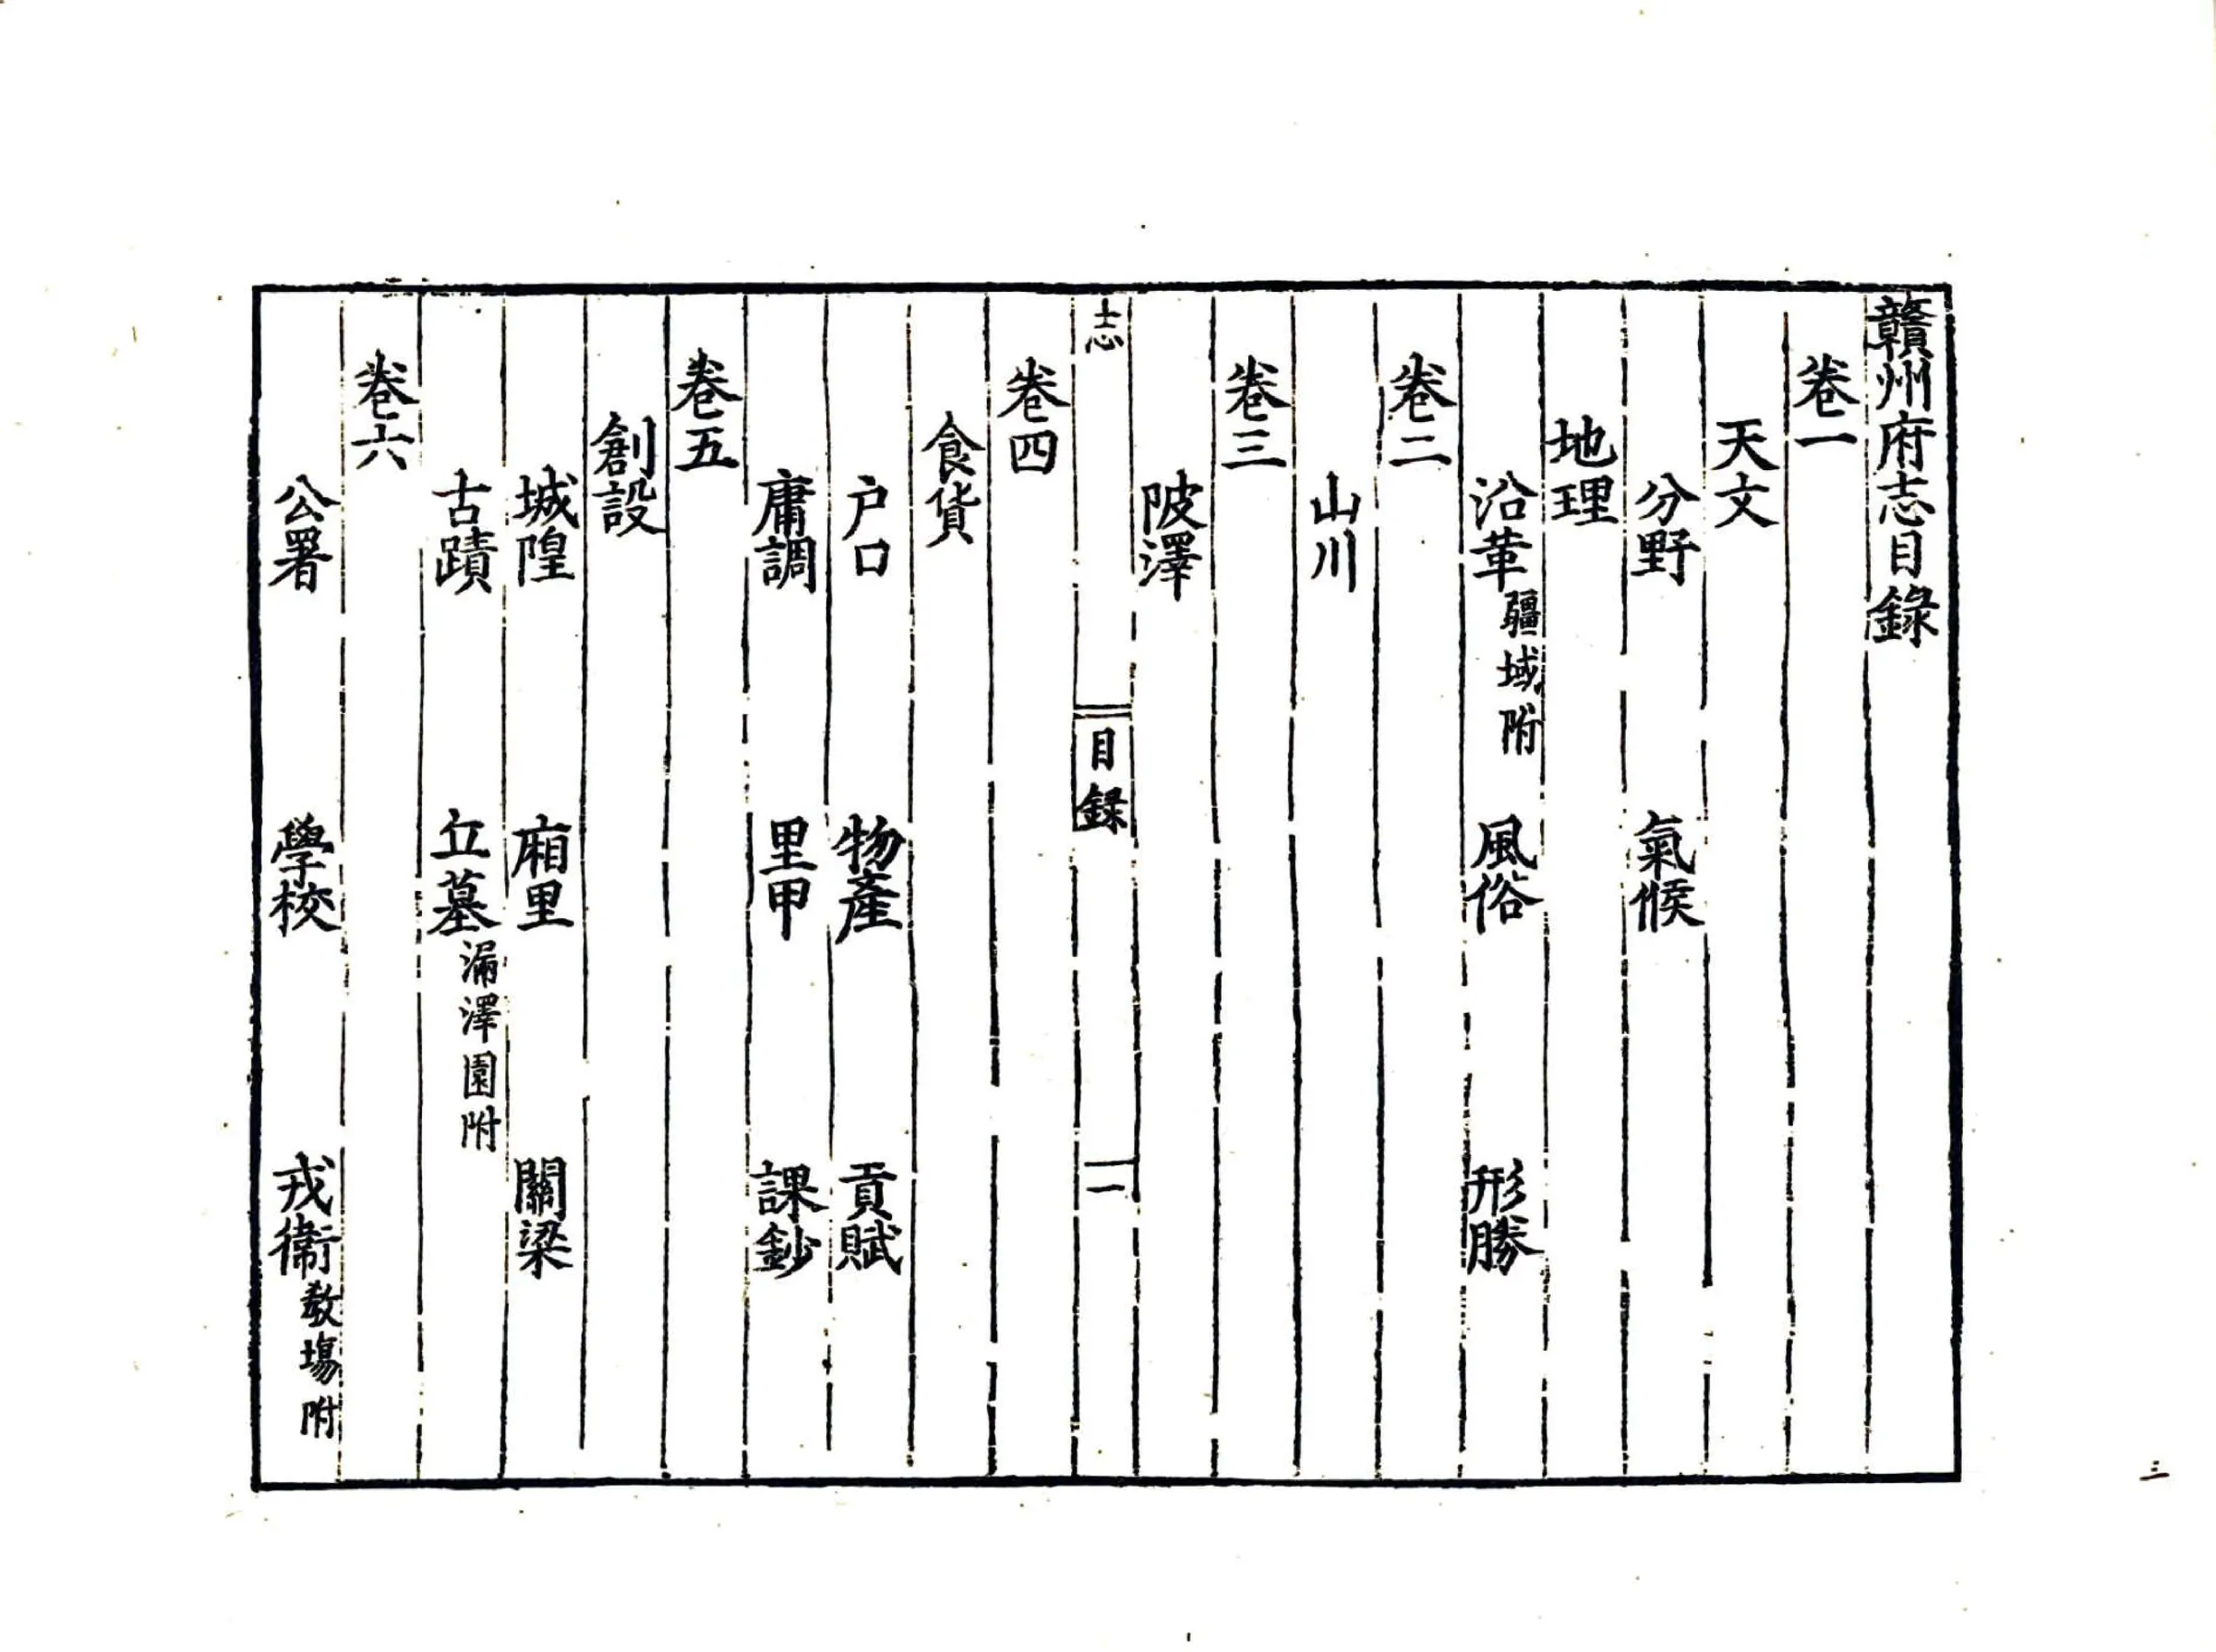 贛州府志目錄
卷一
天文
分野 氣候
地理
沿革疆域附 風俗 形勝
卷二
山川
卷三
陂澤
志 目錄 一
卷四
食貨
户口 物產 貢賦
庸調 里甲 課鈔
卷五
創設
城隍 廂里 關梁
古蹟 丘墓漏澤園附
卷六
公署 學校 戎衞教塲附
三